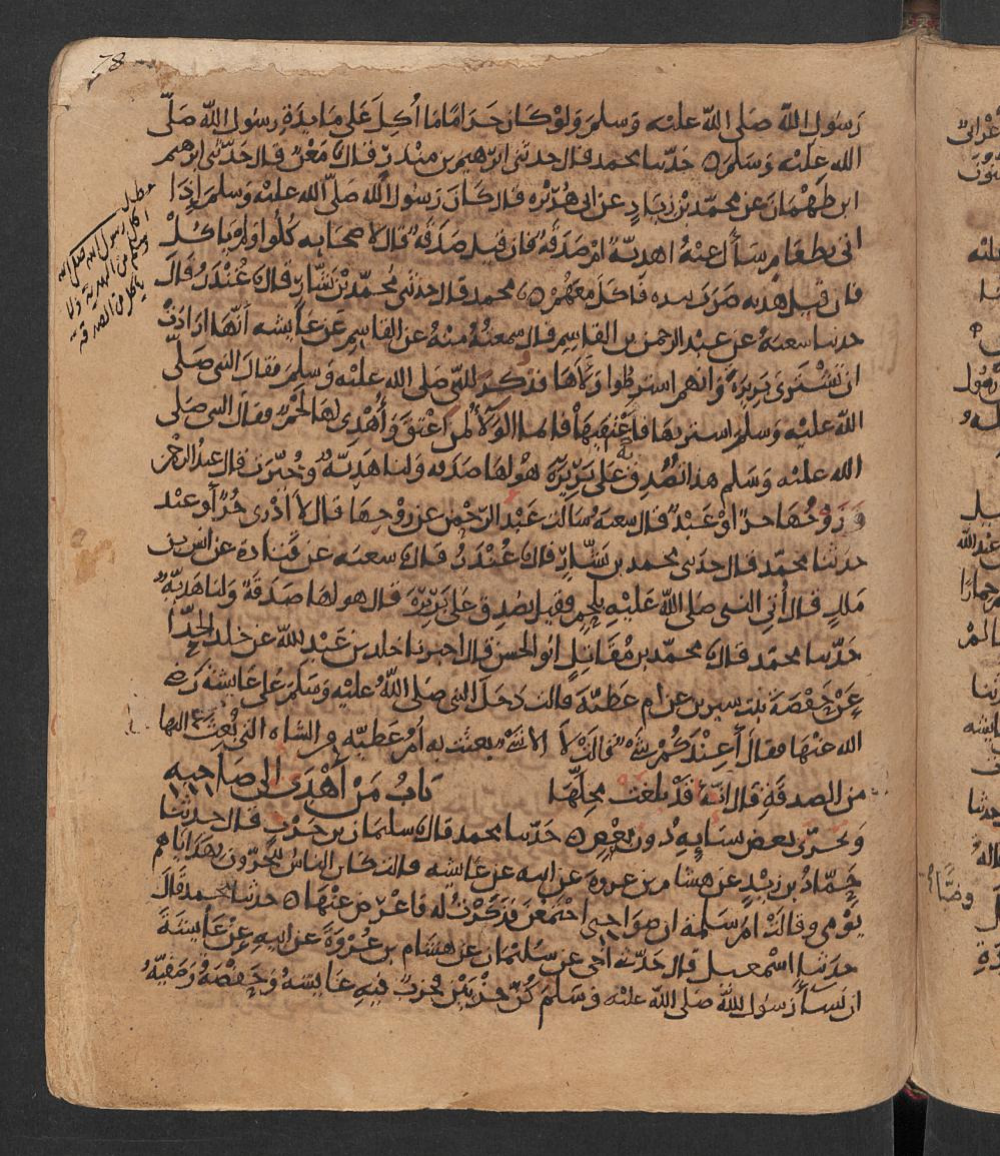 78
رسول الله صلى الله عليه وسلم ولو كان حراما ما أكل على مايدة رسول الله صلى
الله عليه وسلم ٥ حدثنا محمد قال حدثني ابرهيم بن منذر قال نا معن قال حدثني ابرهيم
ابن طهمان عن محمد بن زياد عن ابي هريرة قال كان رسول الله صلى الله عليه وسلم اذا
اتى بطعام سأل عنه اهدية ام صدقة فان قيل صدقة قال لاصحابه كلوا ولم ياكل
فان قيل هدية ضرب بيده فاكل معهم ٥ محمد قال حدثني محمد بن بشار قال نا غندر قال
حدثنا شعبة عن عبد الرحمن بن القاسم قال سمعته منه عن القاسم عن عايشه أنها ارادت
ان تشتري بريرة وانهم اشترطوا ولاها فذكر للنبي صلى الله عليه وسلم فقال النبي صلى
الله عليه وسلم اشتريها فأعتقيها فانما الولاء لمن اعتق وأهدي لها لحم فقال النبي صلى
الله عليه وسلم هذا تصدق على بريرة هو لها صدقه ولنا هدية وخيرت قال عبد الرحمن
زوجها حر او عبد قال شعبة سالت عبد الرحمن عن زوجها قال لا ادري حر أو عبد
حدثنا محمد قال حدثني محمد بن بشار قال نا غندر قال نا شعبه عن قتادة عن انس بن
ملك قال أتي النبي صلى الله عليه بلحم فقيل تصدق على بريرة قال هو لها صدقة ولنا هدية
حدثنا محمد قال نا محمد بن مقاتل ابو الحسن قال اخبرنا خلد بن عبد الله عن خلد الحذا
عن حفصة بنت سيرين عن ام عطية قالت دخل النبي صلى الله عليه وسلم على عايشة رضي
الله عنها فقال أعندكم شي قالت لا الا شي بعثت به أم عطيه من الشاه التي بعثت اليها
من الصدقة قال انه قد بلغت محلها باب من أهدى الى صاحبه
وتحرى بعض نسايه دون بعض ٥ حدثنا محمد قال نا سليمان بن حرب قال حدثنا
حماد بن زيد عن هشام بن عروة عن ابيه عن عايشه قالت كان الناس يتحرون بهداياهم
يومي وقالت ام سلمة ان صواحبي اجتمعن فذكرت له فاعرض عنها ٥ حدثنا محمد قال
حدثنا اسمعيل قال حدثني اخي عن سليمان عن هشام بن عروة عن ابيه عن عايشة
ان نسا رسول الله صلى الله عليه وسلم كن حزبين فحزب فيه عايشة وحفصة وصفية
مطلب
اكل رسول الله صلى الله
وسلم من الهدية ولا
ياكل من الصدقة